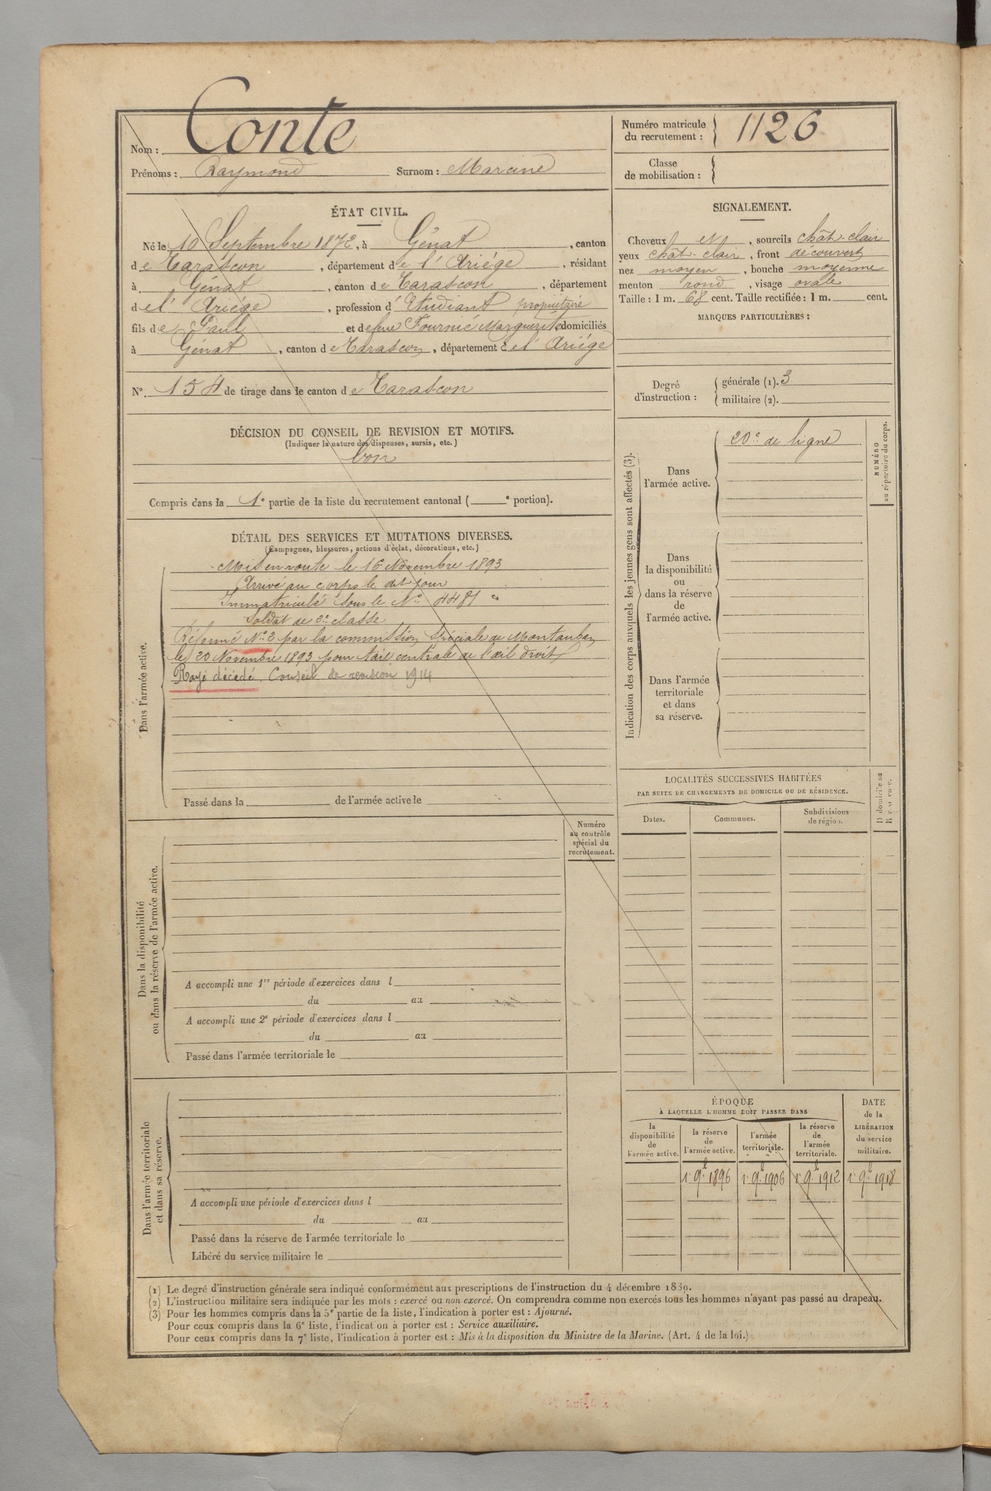 Nom : Conte
Prénoms : Raymond Surnom : Marcine
Numéro matricule du recrutement : 1126
Classe de mobilisation :
ÉTAT CIVIL.
Né le 10 Septembre 1872, à Génat, canton
de Tarascon, département de l'Ariége, résidant
à Génat, canton de Tarascon, département
de l'Ariége, profession d'Etudiant propriétaire
fils de Paul et de Fournié Marguerite, domiciliés
à Génat, canton de Tarascon, département de l'Ariége
N° 154 de tirage dans le canton de Tarascon
DÉCISION DU CONSEIL DE REVISION ET MOTIFS.
(Indiquer la nature des dispenses, sursis, etc.)
bon
Compris dans la 1e partie de la liste du recrutement cantonal ( e portion).
SIGNALEMENT.
Cheveux et, sourcils chât. clair
yeux chât. clair, front découvert
nez moyen, bouche moyenne
menton rond, visage ovale
Taille : 1 m. 68 cent. Taille rectifiée : 1 m. cent.
MARQUES PARTICULIÈRES :
Degré d'instruction :
générale (1). 3
militaire (2).
DÉTAIL DES SERVICES ET MUTATIONS DIVERSES.
(Campagnes, blessures, actions d'éclat, décorations, etc.)
Dans l'armée active.
Mis en route le 16 Novembre 1893
Arrivé au corps le dit jour
Immatriculé sous le N° 4481
Soldat de 2e classe
Réformé N° 2 par la commission spéciale de Montauban
le 20 Novembre 1893 pour taie centrale de l'œil droit
Rayé décédé. Conseil de revision 1914
Passé dans la de l'armée active le
Indication des corps auxquels les jeunes gens sont affectés (3).
Dans l'armée active.
20e de ligne
NUMÉRO au répertoire du corps.
Dans la disponibilité ou dans la réserve de l'armée active.
Dans l'armée territoriale et dans sa réserve.
LOCALITÉS SUCCESSIVES HABITÉES
PAR SUITE DE CHANGEMENTS DE DOMICILE OU DE RÉSIDENCE.
Dates.
Communes.
Subdivisions de région.
Numéro au contrôle spécial du recrutement.
Dans la disponibilité ou dans la réserve de l'armée active.
A accompli une 1re période d'exercices dans l
du au
A accompli une 2e période d'exercices dans l
du au
Passé dans l'armée territoriale le
Dans l'armée territoriale et dans sa réserve.
A accompli une période d'exercices dans l
du au
Passé dans la réserve de l'armée territoriale le
Libéré du service militaire le
ÉPOQUE
À LAQUELLE L'HOMME DOIT PASSER DANS
la disponibilité de l'armée active.
la réserve de l'armée active.
l'armée territoriale.
la réserve de l'armée territoriale.
DATE de la LIBÉRATION du service militaire.
1er 9bre 1896
1er 9bre 1906
1er 9bre 1912
1er 9bre 1918
(1) Le degré d'instruction générale sera indiqué conformément aux prescriptions de l'instruction du 4 décembre 1889.
(2) L'instruction militaire sera indiquée par les mots : exercé ou non exercé. On comprendra comme non exercés tous les hommes n'ayant pas passé au drapeau.
(3) Pour les hommes compris dans la 5e partie de la liste, l'indication à porter est : Ajourné.
Pour ceux compris dans la 6e liste, l'indication à porter est : Service auxiliaire.
Pour ceux compris dans la 7e liste, l'indication à porter est : Mis à la disposition du Ministre de la Marine. (Art. 4 de la loi.)